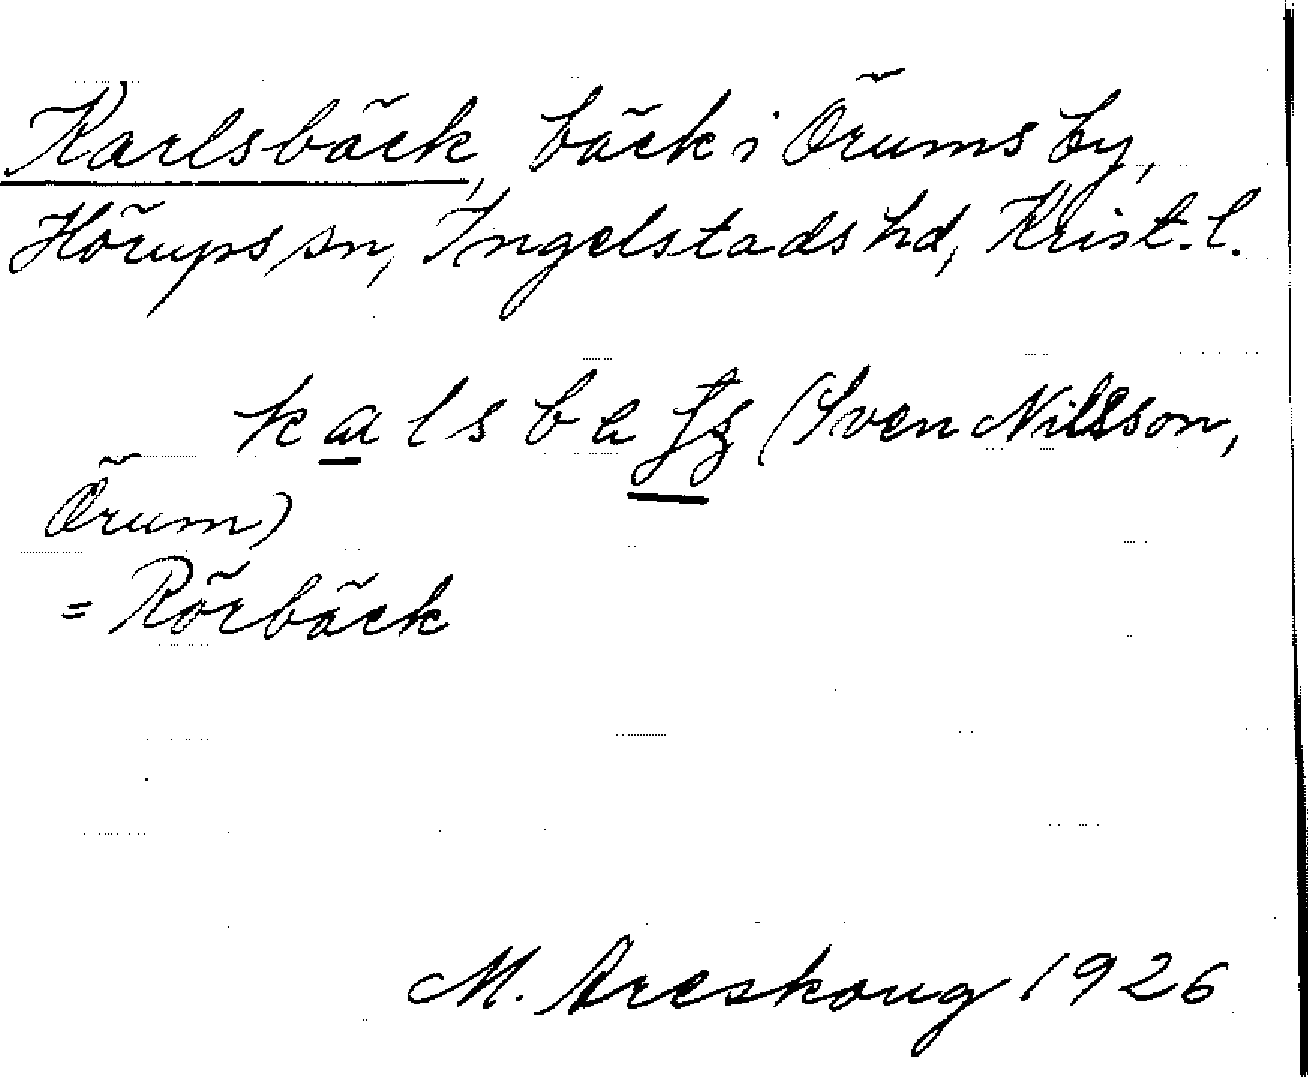 Karlsbäck, bäck i Örums by,
Hörups sn, Ingelstads hd, Krist. l.
(Sven Nilsson,
Örum)
= Rörbäck
M. Areskoug 1926